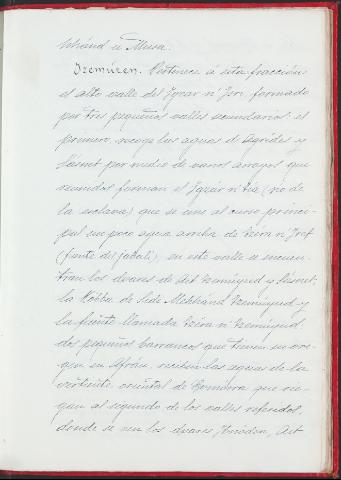 Mhánd u Musa.
Izemúren. Pertenece á esta fracción
el alto valle del Igzar n' Isri formado
por tres pequeños valles secundarios: el
primero recoge las aguas de Agrídes y
por medio de varios arroyos que
reunidos forman el Igzár n' Tia (rio de
la esclava) que se une al curso princi-
pal un poco aguas arriba de
(fuente del jabalí); en este valle se encuen-
tran los duares de Ait
la Kobba de Sidi Mohhánd y
la fuente llamada
dos pequeños barrancos que tienen su ori-
gen en Afrau, reciben las aguas de la
vertiente oriental de que rie-
gan al segundo de los valles referidos,
donde se ven los duares Ait